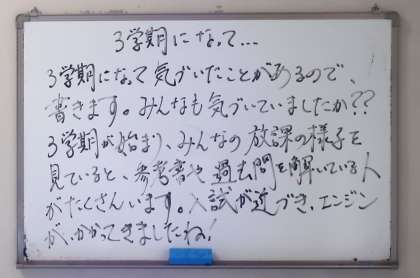 3学期になって…
3学期になって気づいたことがあるので、
書きます。みんなも気づいていましたか??
3学期が始まり、みんなの放課の様子を
見ていると、参考書や過去問を解いている人
がたくさんいます。入試が近づき、エンジン
が、かかってきましたね!